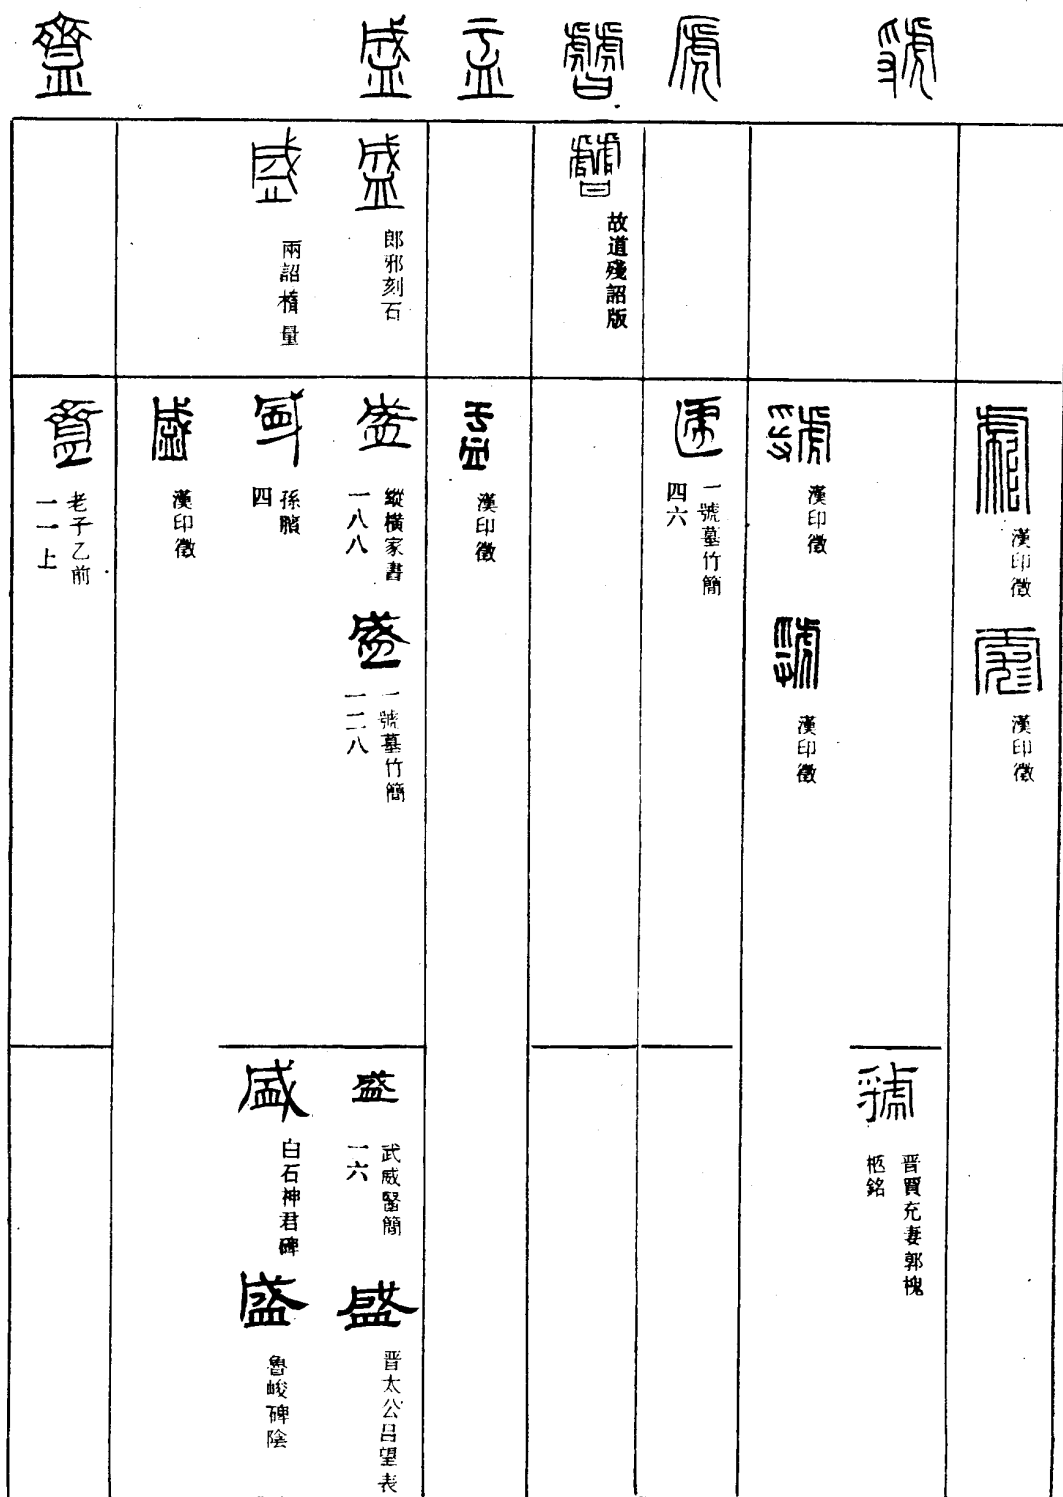 漢印徵
漢印徵
漢印徵
漢印徵
晋賈充妻郭槐
柩銘
虒
一號墓竹簡
四六
故道殘詔版
盂
漢印徵
盛
盛
郎邪刻石
盛
縱橫家書
一八八
盛
一號墓竹簡
一二八
盛
武威醫簡
一六
盛
晋太公呂望表
盛
兩詔橢量
孫臏
四
盛
白石神君碑
盛
魯峻碑陰
盛
漢印徵
齍
老子乙前
一一上